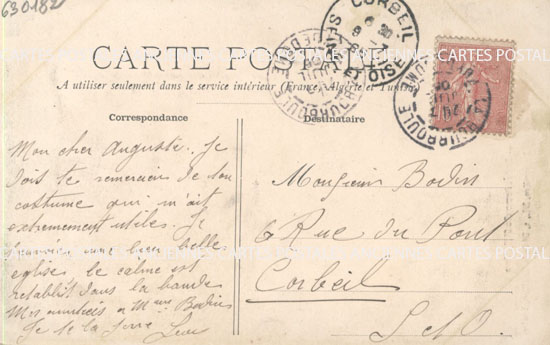 630182
CARTE POSTALE
A utiliser seulement dans le service intérieur (France, Algérie et Tunisie)
Correspondance
Destinataire
CORBEIL
SEINE ET OISE
LA BOURBOULE
PUY-DE-DOME
Mon cher Auguste. Je
dois te remercier de ton
costume qui m'ait
extremement utiles. Je
une bien belle
eglise le calme est
retablit dans la bande
Mes amitiés a Mme Bodin
Je te la serre
Monsieur Bodin
6 Rue du Pont
Corbeil
S et O.
CARTES POSTALES ANCIENNES